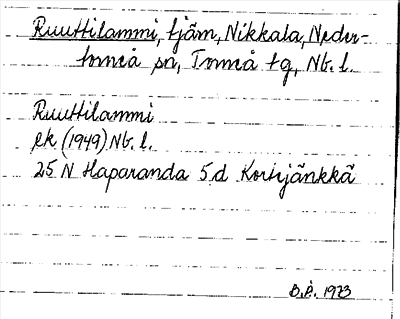 Ruuttilammi, tjärn, Nikkala, Neder-
torneå sn, Torneå tg, Nb. l.
Ruuttilammi
ek (1949) Nb. l.
25 N Haparanda 5 d Kortjänkkä
B.P. 1973